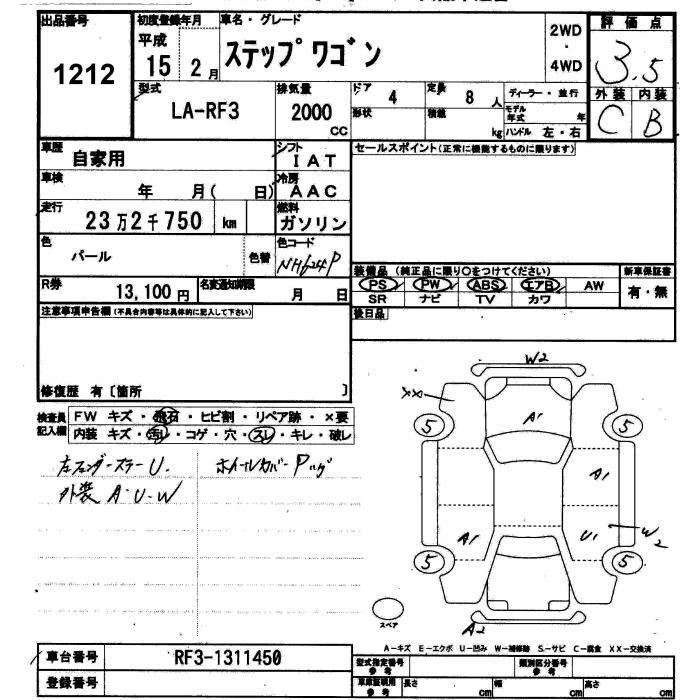 出品番号
1212
初度登録年月
平成
15 2月
車名・グレード
ステップワゴン
2WD
・
4WD
評価点
3.5
外装 内装
C B
型式
LA-RF3
排気量
2000
CC
ドア
4
定員
8 人
形状
積載
kg
ディーラー・並行
モデル年式 年
ハンドル 左・右
車歴
自家用
シフト
IAT
セールスポイント(正常に機能するものに限ります)
車検
年 月( 日)
冷房
AAC
走行
23万2千750 km
燃料
ガソリン
色
パール
色替
色コード
NH624P
装備品 (純正品に限り○をつけてください)
新車保証書
PS PW ABS エアB AW
SR ナビ TV カワ
有・無
R券
13,100円
名変通知期限
月 日
後日品
注意事項申告欄(不具合内容等は具体的に記入して下さい)
修復歴 有〔箇所 〕
検査員
記入欄
FW キズ・飛石・ヒビ割・リペア跡・×要
内装 キズ・汚レ・コゲ・穴・スレ・キレ・破レ
外装 A・U・W
W2
XX
5
5
A1
A1
A1
U1
W2
5
5
スペア
A2
A-キズ E-エクボ U-凹み W-補修跡 S-サビ C-腐食 XX-交換済
車台番号
RF3-1311450
登録番号
型式指定番号
参考
類別区分番号
参考
車庫証明用
参考
長さ cm
幅 cm
高さ cm